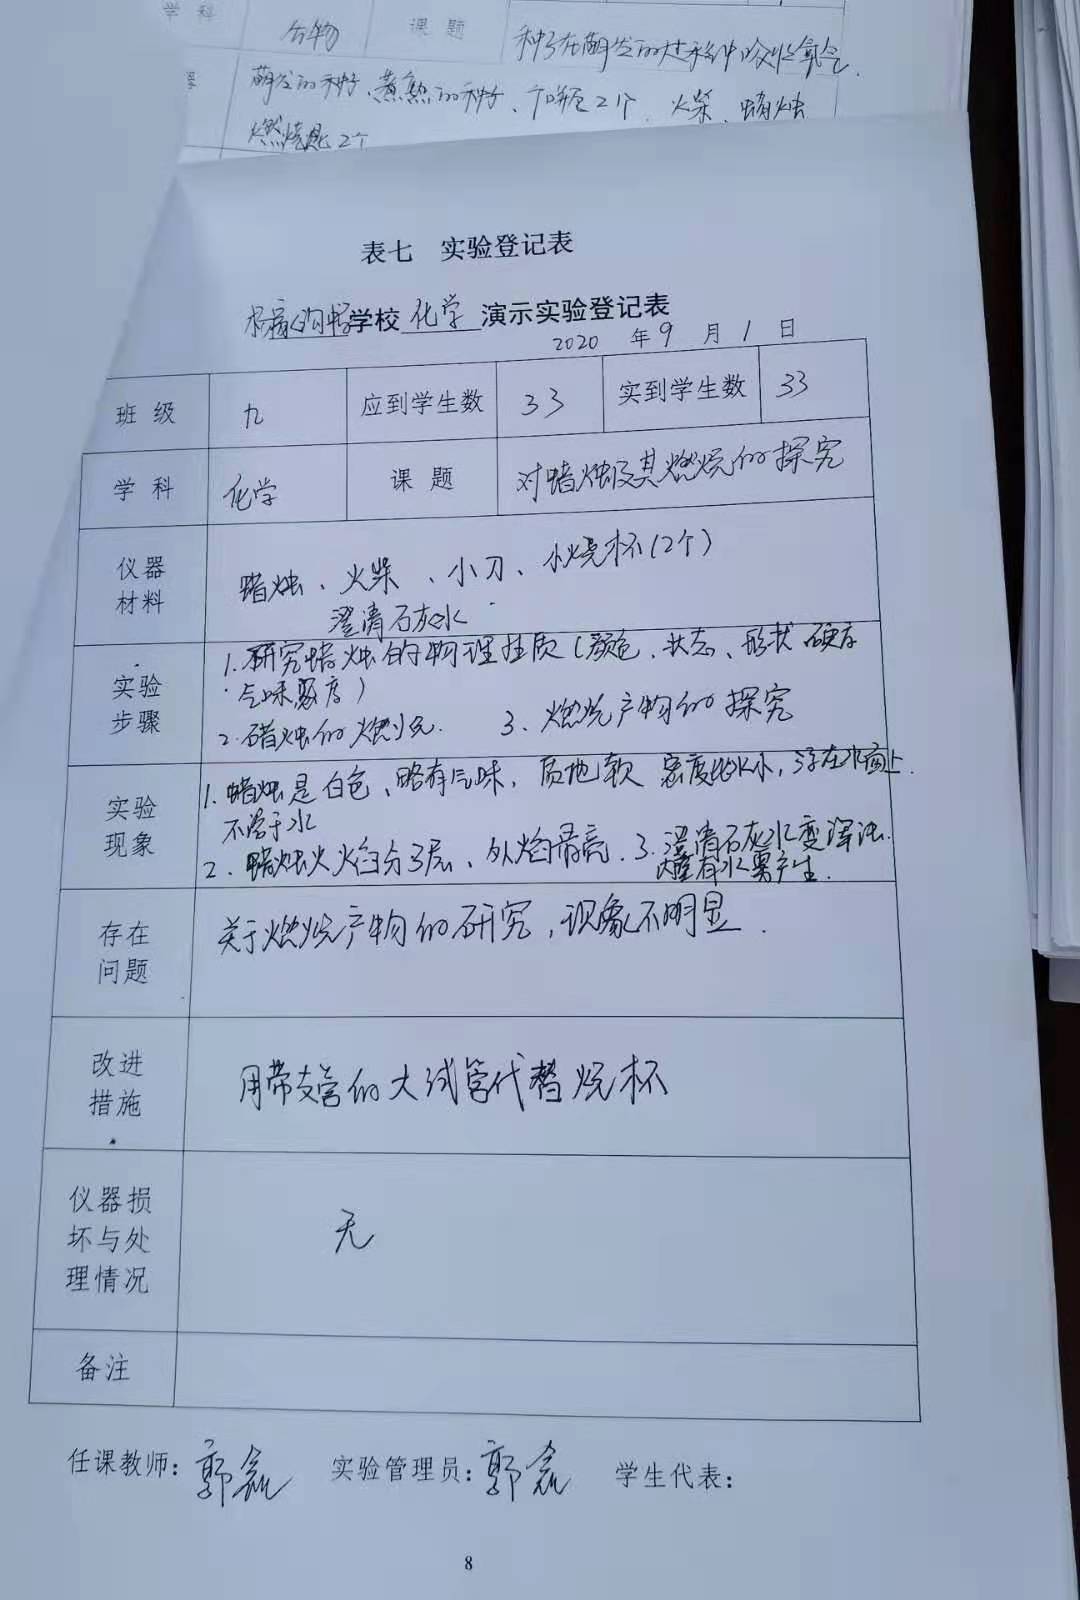 学科 生物 课题 种子在萌发的过程中吸收氧气.
萌发的种子、煮熟的种子、 2个、火柴、蜡烛
燃烧匙2个
表七 实验登记表
学校 化学 演示实验登记表
2020 年 9 月 1 日
班级 九 应到学生数 33 实到学生数 33
学科 化学 课题 对蜡烛及其燃烧的探究
仪器材料 蜡烛、火柴、小刀、小烧杯(2个)
澄清石灰水
实验步骤 1.研究蜡烛的物理性质(颜色、状态、形状 硬度
气味密度)
2.蜡烛的燃烧. 3.燃烧产物的探究
实验现象 1.蜡烛是白色、略有气味,质地软 密度比水小,浮在水面上.
不溶于水
2.蜡烛火焰分3层、外焰最亮.3.澄清石灰水变浑浊.
罐有水雾产生.
存在问题 关于燃烧产物的研究,现象不明显.
改进措施 用带支管的大试管代替烧杯
仪器损坏与处理情况 无
备注
任课教师:郭磊 实验管理员:郭磊 学生代表:
8